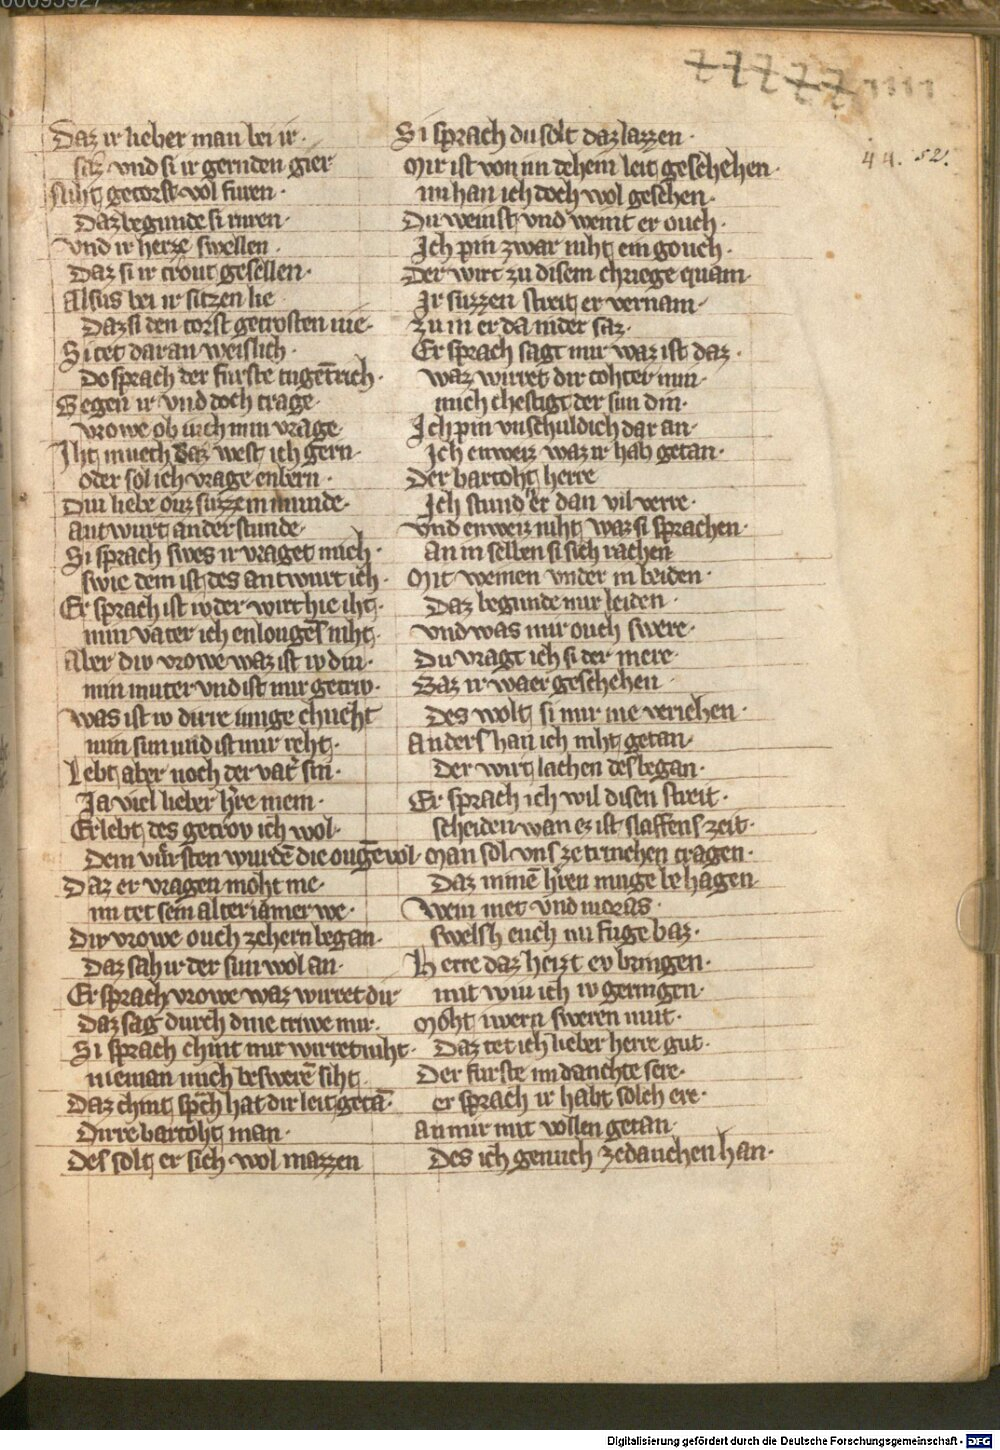 Daz ir lieber man bei ir·
saz vnd si ir gernden gier
Niht getorst vol furen·
Daz begunde si ruren·
Vnd ir herze swellen·
Daz si ir trout gesellen·
Alsus bei ir sitzen lie
Daz si den torst getrosten nie·
Si tet daran weislich·
Do sprach der furste tugētrich·
Gegen ir vnd doch trage·
vrowe ob iuch min vrage
Iht muech daz west ich gern·
oder sol ich vrage enbern·
Diu liebe ouz suzzem munde·
Antwurt an der stunde·
Si sprach swes ir vraget mich·
swie dem ist des antwurt ich·
Er sprach ist iv der wirt hie iht·
min vater ich enlougēs niht·
Aber div vrowe waz ist iv div·
min muter vnd ist mir getriv·
was ist iv dirre iunge chneht
min sun und ist mir reht·
Lebt aber noch der vat̄ sin·
Ja viel lieber h̄re mein·
Er lebt des getrov ich wol·
Dem vūrsten wurdē die ougē vol·
Daz er vragen moht me·
im tet sein alter iamer we·
Div vrowe ouch zehern began·
Daz sah ir der sun wol an·
Er sprach vrowe waz wirret dir
Daz sag durch dine triwe mir·
Si sprach chint mir wirret niht·
nieman mich beswerē siht
Daz chint sp̄ch hat dir leit getā·
Dirre bartoht man·
Des solt er sich wol mazzen
Si sprach du solt daz lazzen·
Mir ist von im dehein leit geschehen·
im han ich doch wol gesehen·
Du weinst vnd weint er ouch·
Ich pin zwar niht ein gouch·
Der wirt zu disem chriege quam·
Ir suzzen streit er vernam·
zu in er da nider saz·
Er sprach sagt mir waz ist daz·
waz wirret dir tohter min·
mich chestigt der sun din·
Ich pin vnschuldich dar an·
Ich enweiz waz ir hab getan·
Der bartoht herre
Ich stund er dan vil verre·
vnd enweiz niht waz si sprachen·
An in selben si sich rachen
Mit weinen vnder in beiden·
Daz begunde mir leiden·
vnd was mir ouch swere·
Du vragt ich si der mere·
Waz ir waer geschehen·
Des wolt si mir nie veriehen·
Anders han ich niht getan·
Der wirt lachen des began·
Er sprach ich wil disen streit·
scheiden wan ez ist slaffens zeit·
Man sol vns ze trinchen tragen·
Daz minē h̄ren muge behagen
Wein met vnd moras·
swelsh euch nu fuge baz·
Herre daz heizt ev bringen·
mit wiu ich iv geringen·
Moht iwern sweren mut·
Daz tet ich lieber herre gut·
Der furste im danchte sere·
er sprach ir habt solch ere·
An mir mit vollen getan
Des ich genuch ze danchen han·
44. 52.
Digitalisierung gefördert durch die Deutsche Forschungsgemeinschaft - DFG